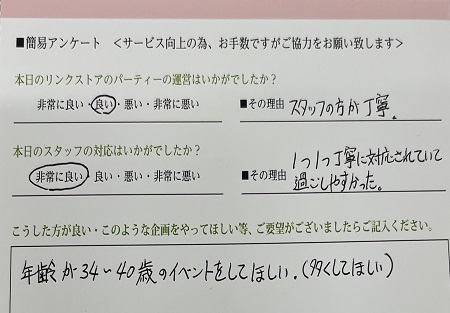 ■簡易アンケート ＜サービス向上の為、お手数ですがご協力をお願い致します＞
本日のリンクストアのパーティーの運営はいかがでしたか？
非常に良い・良い・悪い・非常に悪い ■その理由 スタッフの方が丁寧。
本日のスタッフの対応はいかがでしたか？
1つ1つ丁寧に対応されていて
非常に良い・良い・悪い・非常に悪い ■その理由 過ごしやすかった。
こうした方が良い・このような企画をやってほしい等、ご要望がございましたらご記入ください。
年齢が34～40歳のイベントをしてほしい.(多くしてほしい)